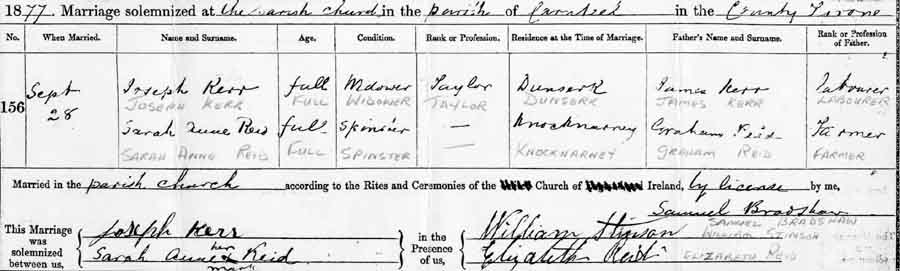 1877. Marriage solemnized at the parish church in the parish of Carnteel in the County Tyrone
No. When Married. Name and Surname. Age. Condition. Rank or Profession. Residence at the Time of Marriage. Father's Name and Surname. Rank or Profession of Father.
156 Sept 28
Joseph Kerr full Widower Taylor Dunserk James Kerr Labourer
JOSEPH KERR FULL WIDOWER TAYLOR DUNSERK JAMES KERR LABOURER
Sarah Anne Reid full Spinster — Knocknarney Graham Reid Farmer
SARAH ANNE REID FULL SPINSTER KNOCKNARNEY GRAHAM REID FARMER
Married in the parish church according to the Rites and Ceremonies of the Church of Ireland, by license by me,
Samuel Bradshaw
SAMUEL BRADSHAW
This Marriage was solemnized between us,
Joseph Kerr
Sarah Anne her x mark Reid
in the Presence of us,
William Stinson
WILLIAM STINSON
Elizabeth Reid
ELIZABETH REID